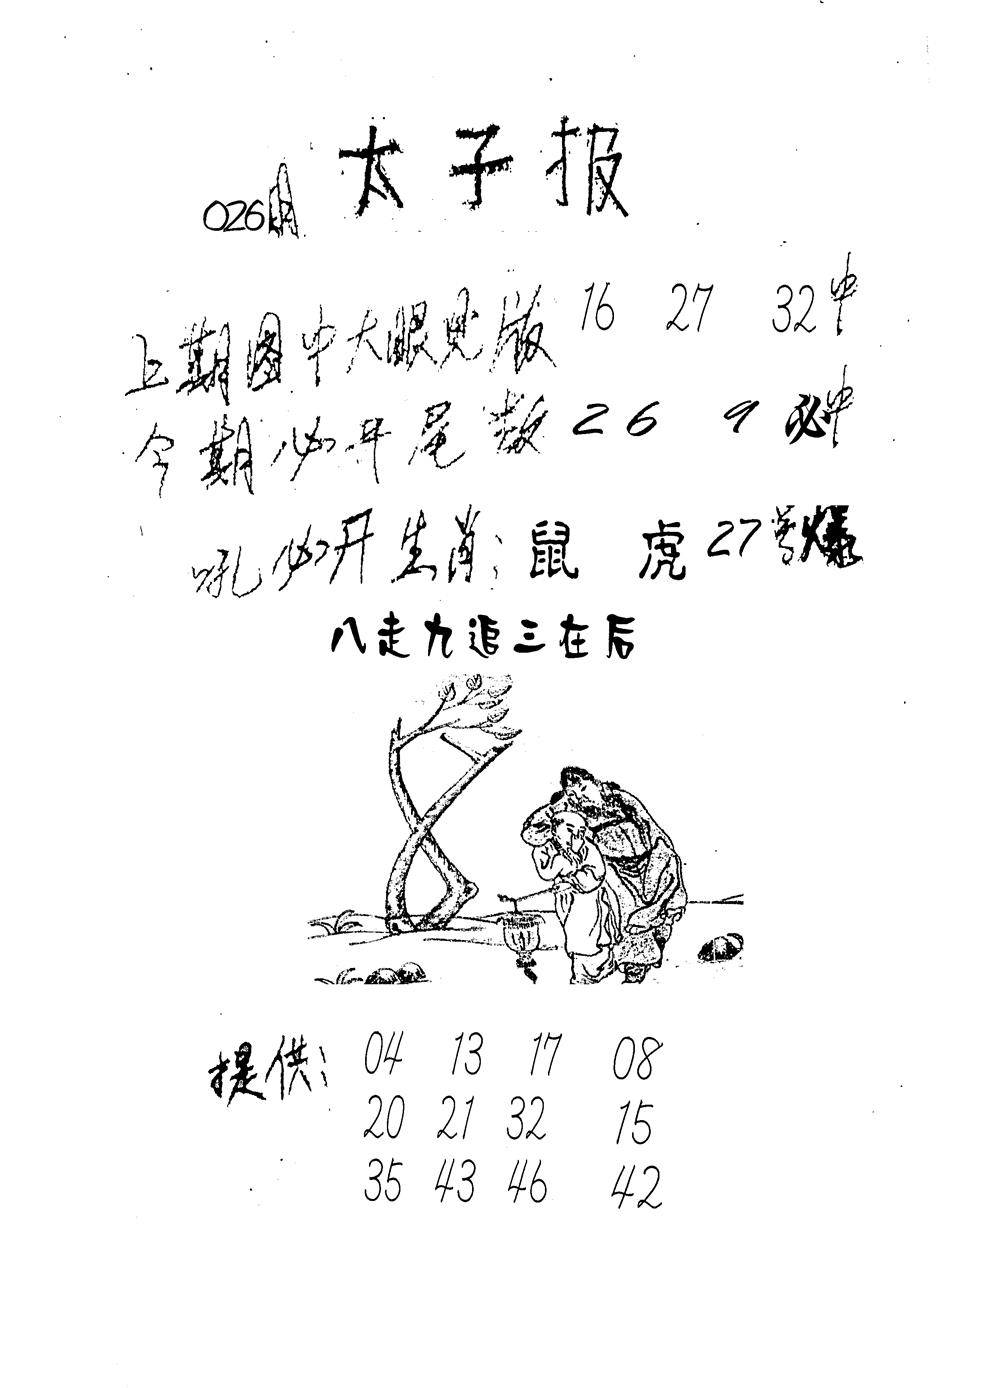 太子报
026期
上期图中大眼见版 16 27 32中
今期必开尾数 2 6 9 必中
吼必开生肖: 鼠 虎 27号爆
八走九追三在后
提供: 04 13 17 08
20 21 32 15
35 43 46 42